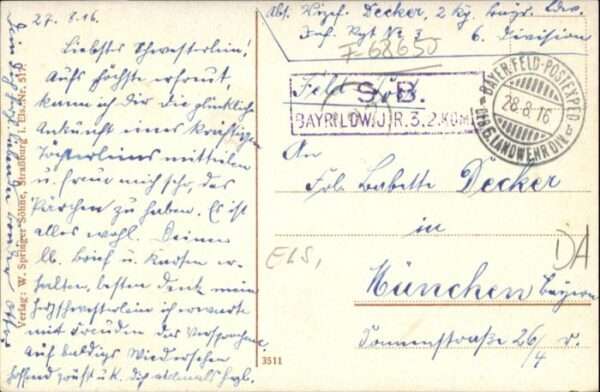 27. 8. 16.
Liebstes Schwesterlein!
Aufs höchste erfreut,
kann ich dir die glückliche
Ankunft eines kräftigen
Töchterleins mitteilen
u. freue mich sehr, das
Pärchen zu haben. Es ist
alles wohl. Deinen
lb. Brief u. Karten er-
halten, besten Dank mein
Herzschwesterlein ich erwarte
mit Freuden das Versprochene.
Auf baldiges Wiedersehen
hoffend grüßt u. k. dich
Verlag: W. Springer Söhne, Straßburg i. Els. Nr. 517.
3511
Abs. Vizef. Decker, 2 Kg. bayr. Ldw.
Inf. Rgt No 3 6. Division
F-68650
Feld
S. B.
BAYR. LDW. J. R. 3. 2. KOM
BAYER. FELD-POSTEXPED.
28. 8. 16
DER 6. LANDWEHR DIV.
An
Frl. Babette Decker
in
ELS,
DA
München
Bayern
Sonnenstraße 26/4 r.